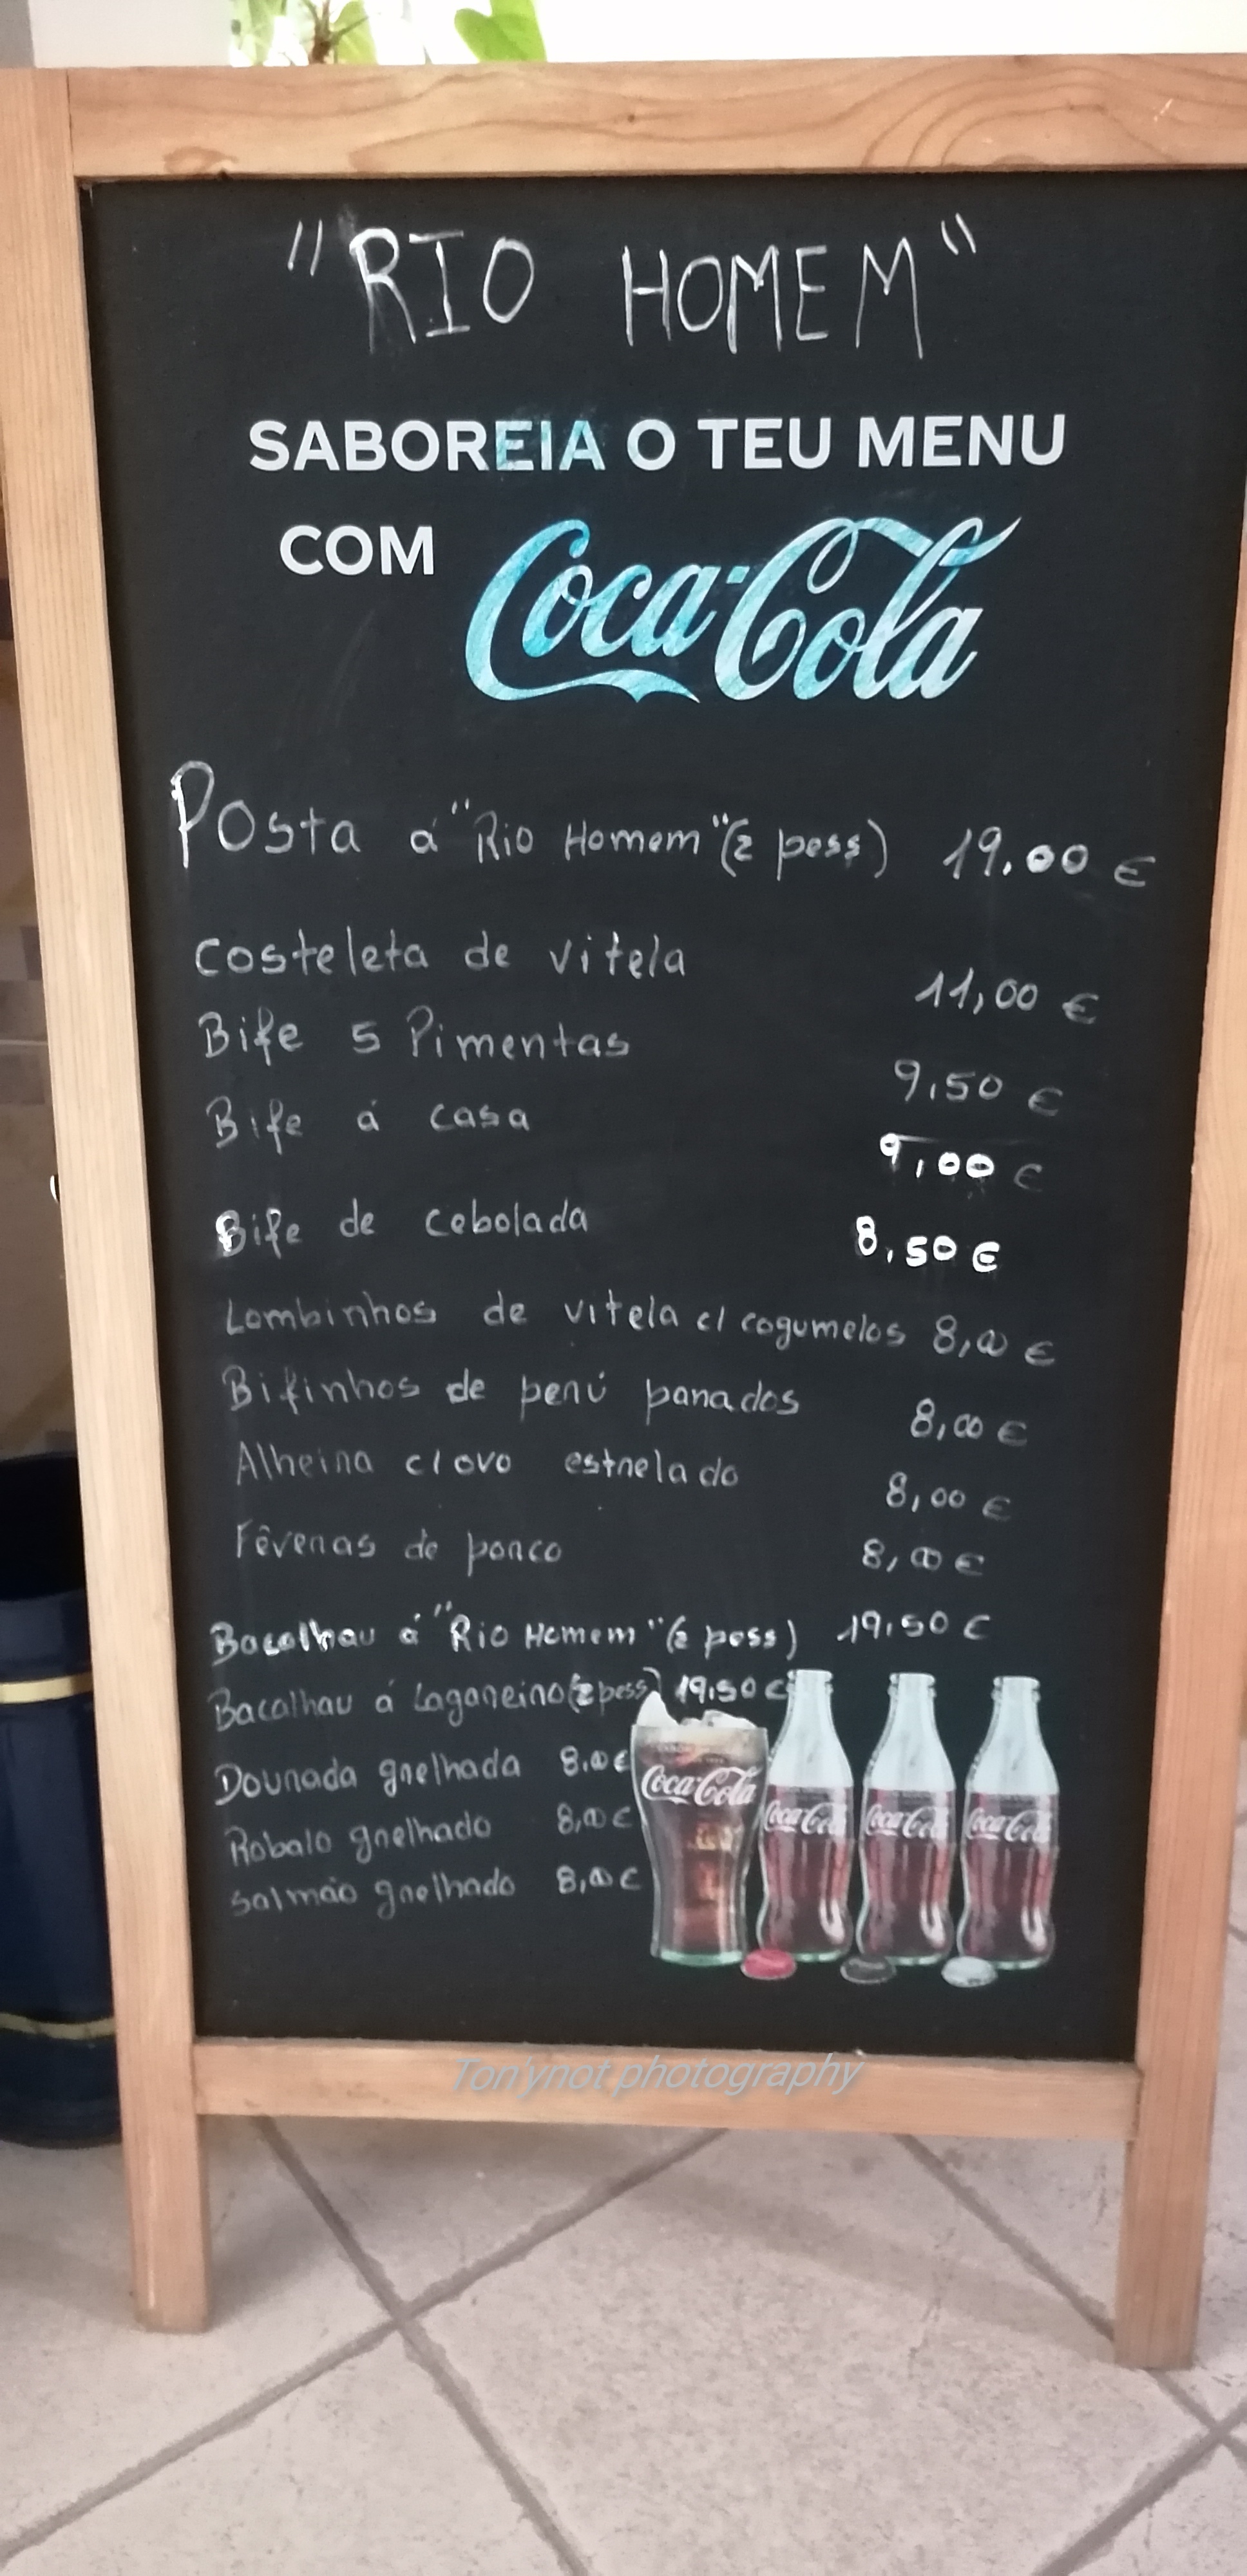 "RIO HOMEM"
SABOREIA O TEU MENU
COM Coca-Cola
Posta á "Rio Homem" (2 pess) 19.00 €
Costeleta de vitela 11,00 €
Bife 5 Pimentas 9,50 €
Bife á casa 9,00 €
Bife de cebolada 8,50 €
Lombinhos de vitela c/ cogumelos 8,00 €
Bifinhos de perú panados 8,00 €
Alheira c/ ovo estrelado 8,00 €
Fêveras de porco 8,00 €
Bacalhau á "Rio Homem" (2 pess) 19,50 €
Bacalhau á Lagareiro (2 pess) 19,50 €
Dourada grelhada 8,00 €
Robalo grelhado 8,00 €
Salmão grelhado 8,00 €
Coca-Cola Coca-Cola Coca-Cola Coca-Cola
Ton'ynot photography